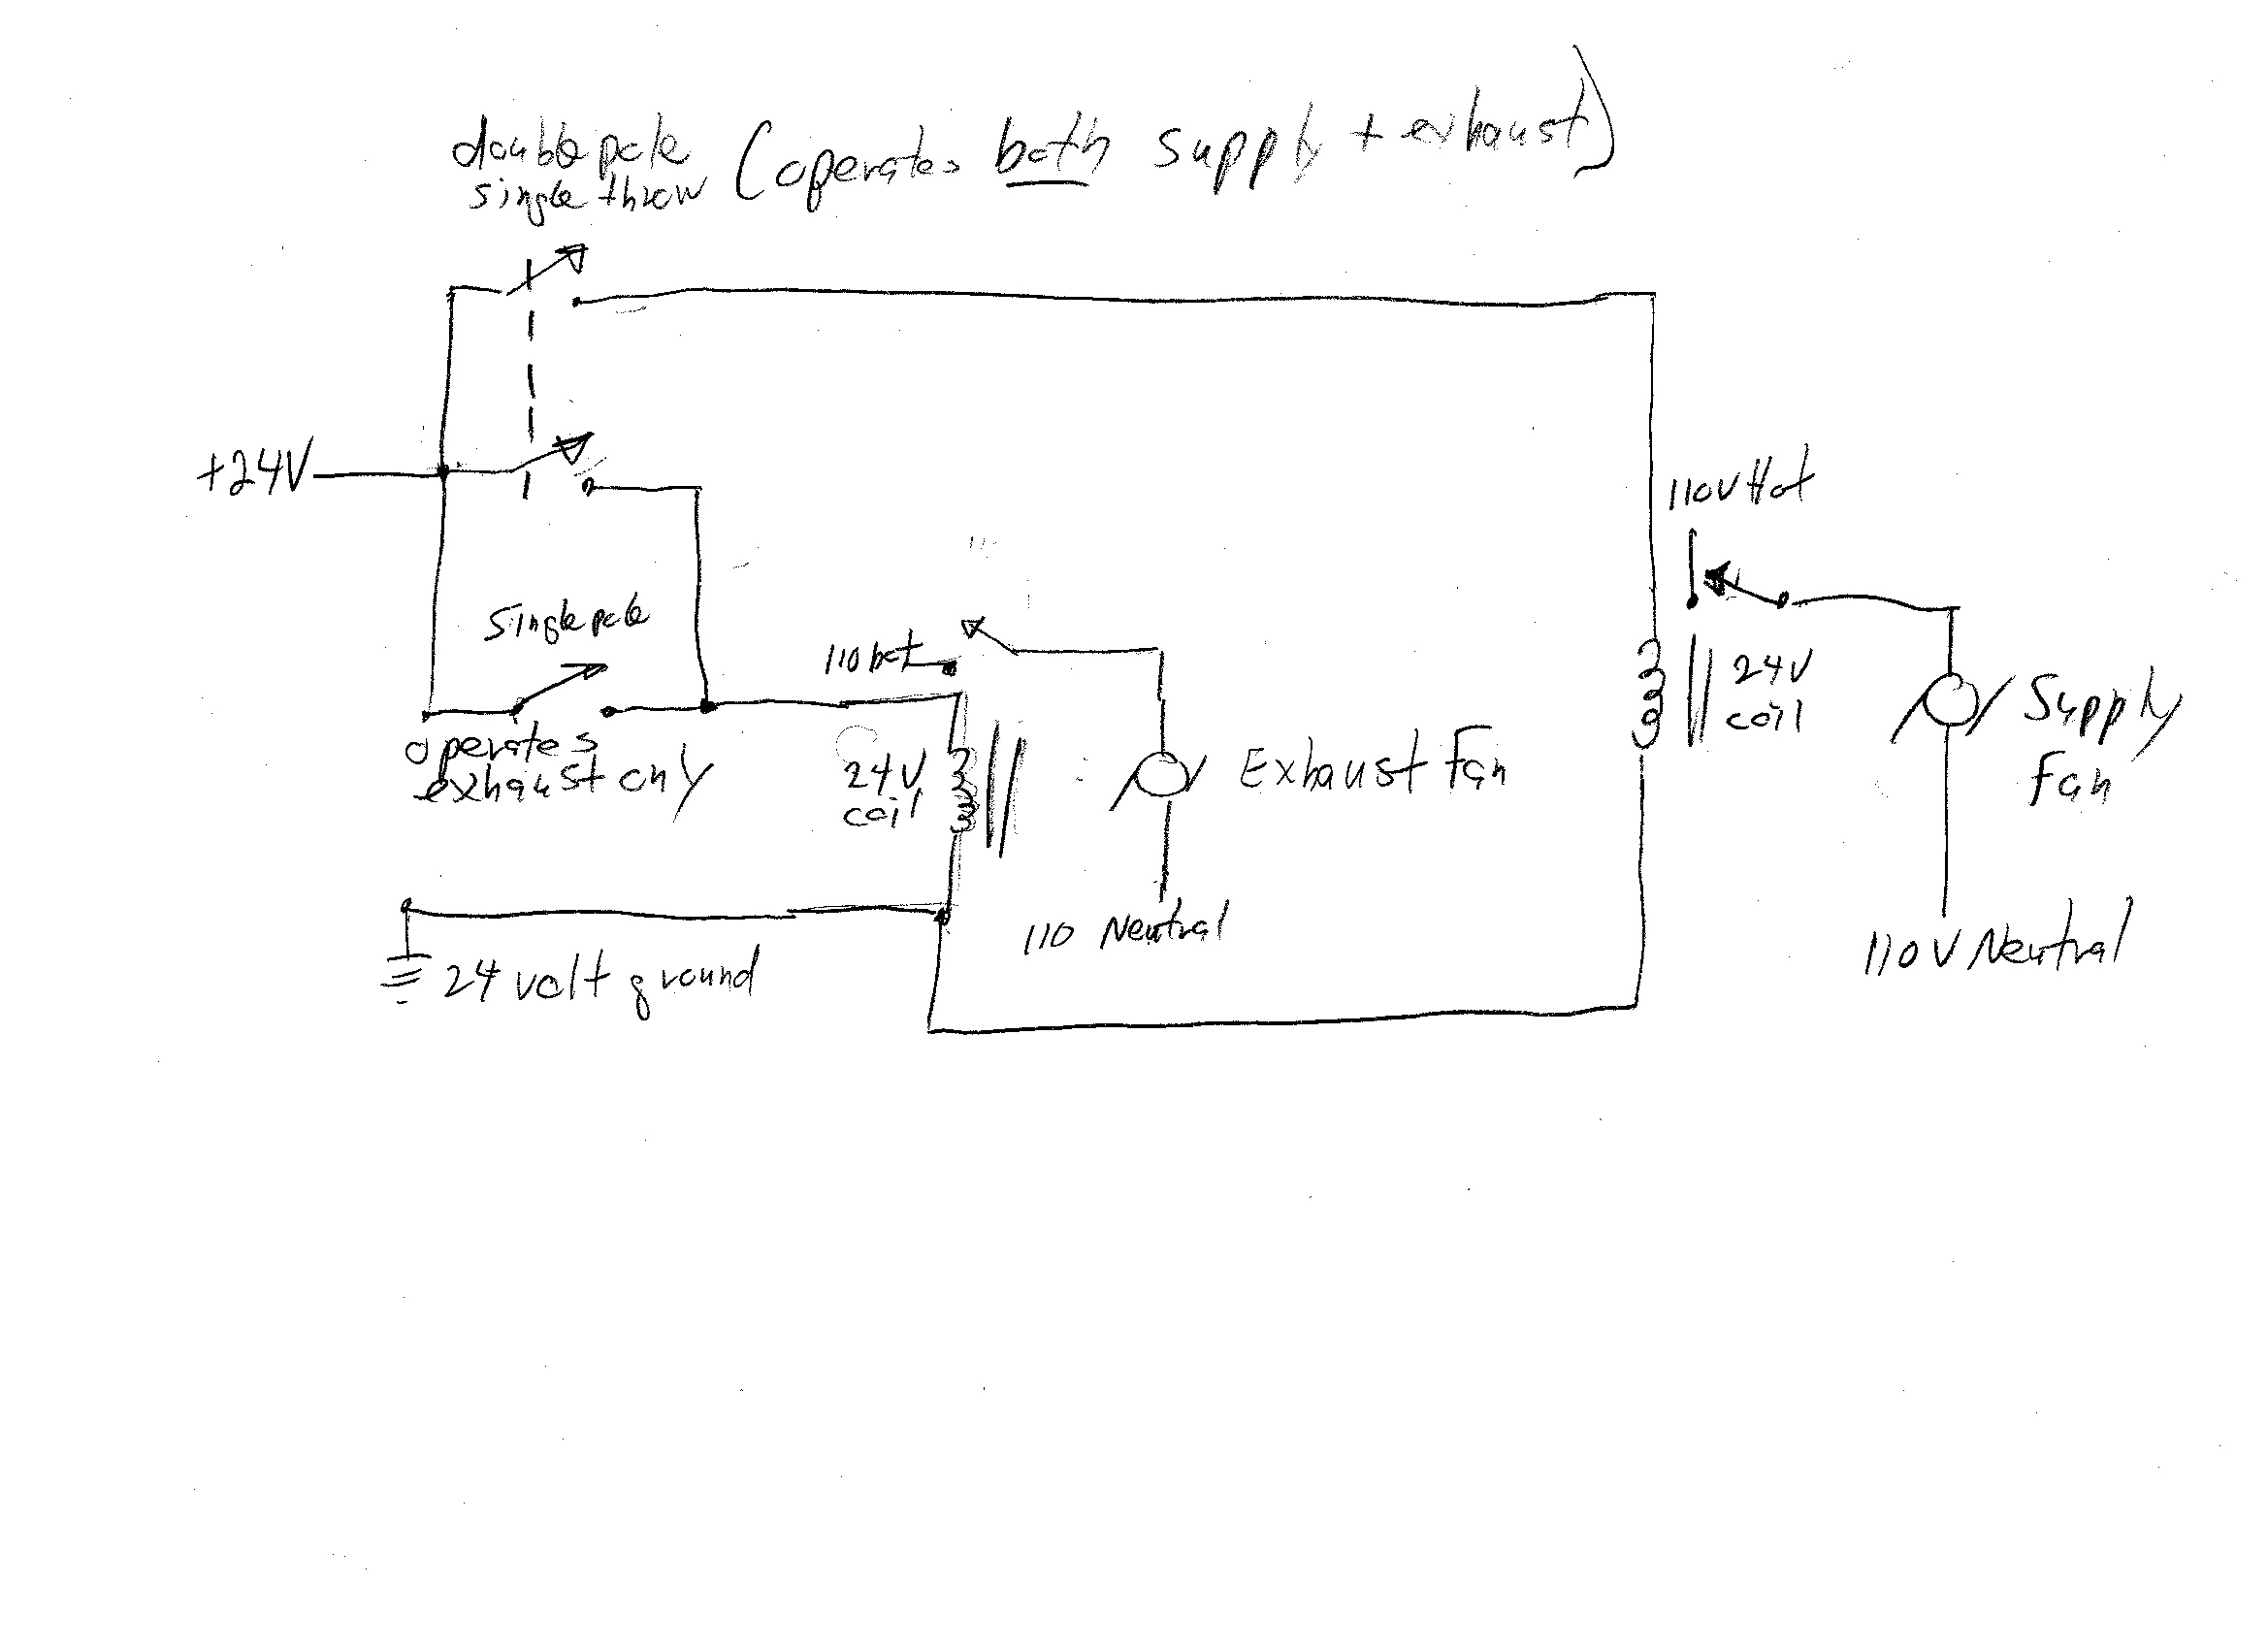 double pole (operates both supply + exhaust)
single throw
+24V
110V Hot
single pole
110 hot
24V
coil
Supply
Fan
operates
exhaust only
24V
coil
Exhaust Fan
110 Neutral
110V Neutral
24 volt ground